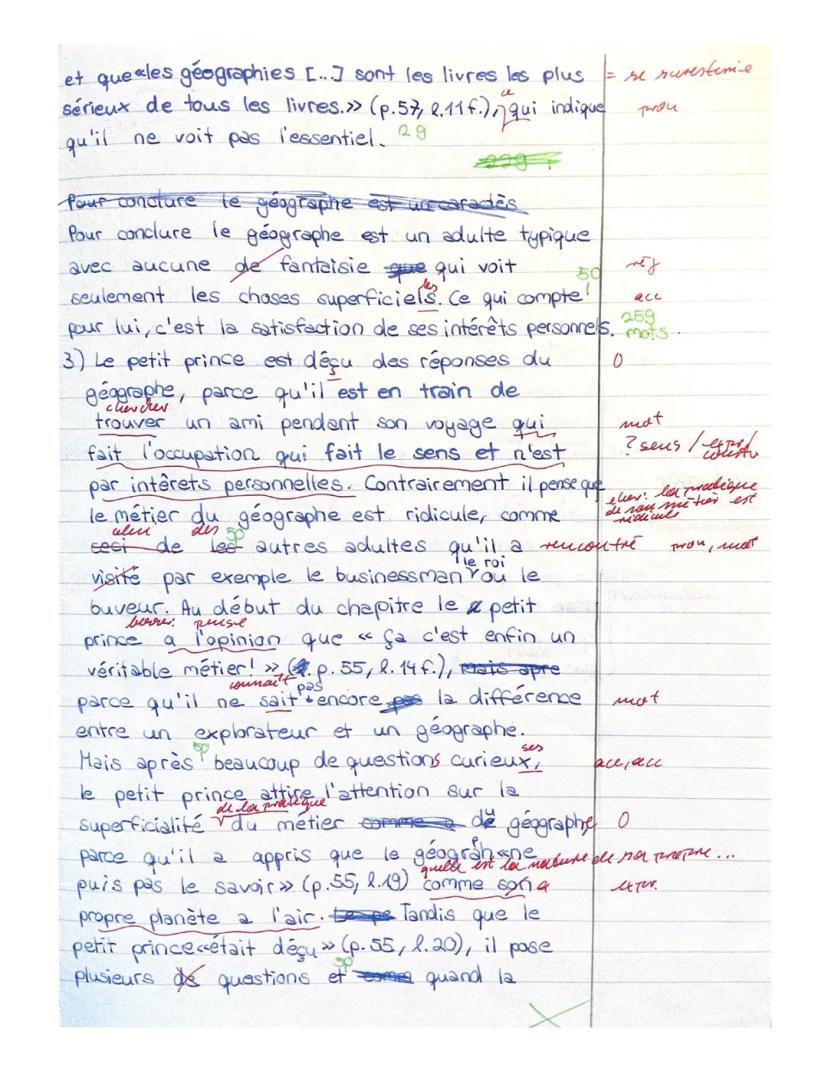 et que «les géographies [...] sont les livres les plus = se surestime
ce
sérieux de tous les livres.» (p.57, l.11f.), qui indique pron
qu'il ne voit pas l'essentiel. 29
229
Pour conclure le géographe est un caractès
Pour conclure le géographe est un adulte typique
avec aucune de fantaisie que qui voit 50
les
seulement les choses superficiels. Ce qui compte acc
pour lui, c'est la satisfaction de ses intérêts personnels. 259 mots
3) Le petit prince est déçu des réponses du 0
géographe, parce qu'il est en train de
chercher
trouver un ami pendant son voyage qui mot
fait l'occupation qui fait le sens et n'est ? sens /
par intêrets personnelles. Contrairement il pense que
la pratique de son métier est ridicule
le métier du géographe est ridicule, comme
celui des 50
ceci de les autres adultes qu'il a rencontré pron, mot
le roi
visité par exemple le businessman ou le
buveur. Au début du chapitre le petit
pense
prince a l'opinion que « ça c'est enfin un
véritable métier! » (p.55, l.14f.), mais apre
connaît pas
parce qu'il ne sait encore pas la différence mot
entre un explorateur et un géographe.
50 ses
Mais après beaucoup de questions curieux, acc, acc
le petit prince attire l'attention sur la
de la pratique
superficialité du métier comme a du géographe 0
parce qu'il a appris que le géographe «ne
quelle est la nature de sa propre ...
puis pas le savoir» (p.55, l.19) comme son a
propre planète a l'air. Tandis que le
petit prince «était déçu» (p.55, l.20), il pose
50
plusieurs de questions et comme quand la